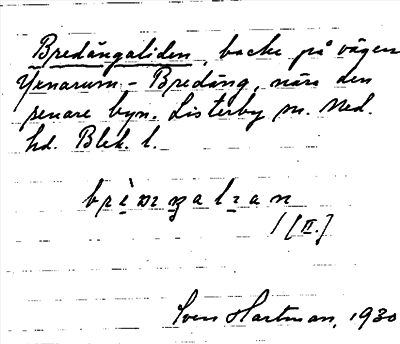 Bredångaliden, backe på vägen
Yxnarum - Bredång, nära den
senare byn. Listerby sn. Med.
hd. Blek. l.
1 [II.]
Sven Hartman, 1930